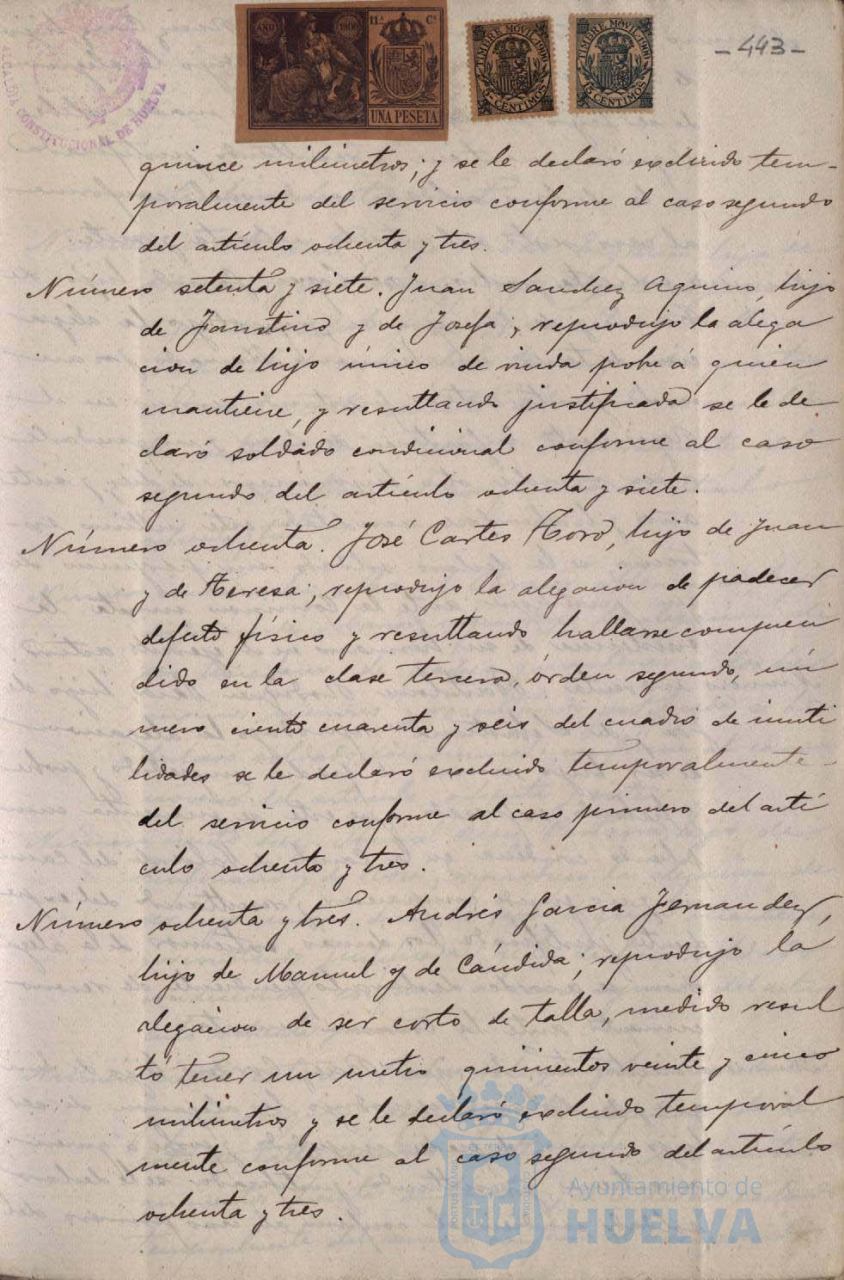 ALCALDIA CONSTITUCIONAL DE HUELVA
AÑO 1900
11.ª Cˢ
UNA PESETA
TIMBRE MOVIL 1900
5 CENTIMOS
TIMBRE MOVIL 1900
5 CENTIMOS
- 443 -
quince milimetros; y se le declaró excluido tem-
poralmente del servicio conforme al caso segundo
del artículo ochenta y tres.
Número setenta y siete. Juan Sanchez Aquino, hijo
de Faustino y de Josefa; reprodujo la alega
cion de hijo único de viuda pobre á quien
mantiene, y resultando justificada se le de
claró soldado condicional conforme al caso
segundo del artículo ochenta y siete.
Número ochenta. José Cartes Toro, hijo de Juan
y de Teresa; reprodujo la alegacion de padecer
defecto físico y resultando hallarse compren
dido en la clase tercera, órden segundo, nú
mero ciento cuarenta y seis del cuadro de inuti
lidades se le declaró excluido temporalmente-
del servicio conforme al caso primero del artí
culo ochenta y tres.
Número ochenta y tres. Andrés Garcia Fernandez,
hijo de Manuel y de Cándida; reprodujo la
alegacion de ser corto de talla, medido resul
tó tener un metro quinientos veinte y cinco
milimetros y se le declaró excluido temporal
mente conforme al caso segundo del artículo
ochenta y tres.
Ayuntamiento de
HUELVA